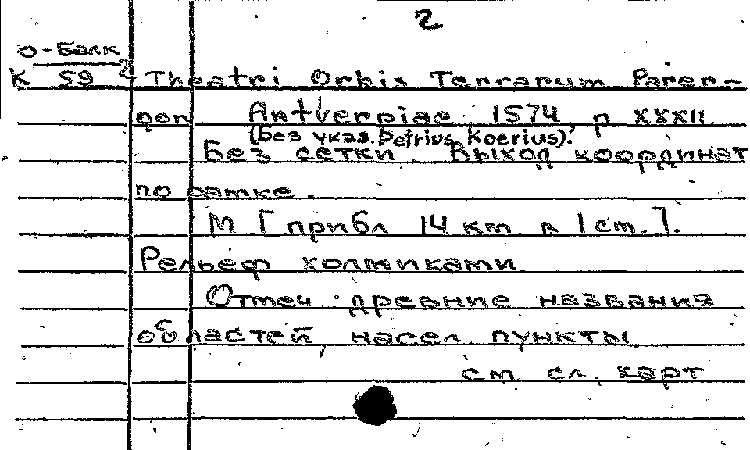 2
О-Балк
К 59 2 Theatri Orbis Terrarum Parer-
gon Antverpiae 1574 p XXXII
(Без указ. Petrius Koerius).
Без сетки. Выход координат
по рамке.
М [прибл 14 км в 1 см.].
Рельеф холмиками
Отмеч. древние названия
областей, насел. пункты
см. сл. карт